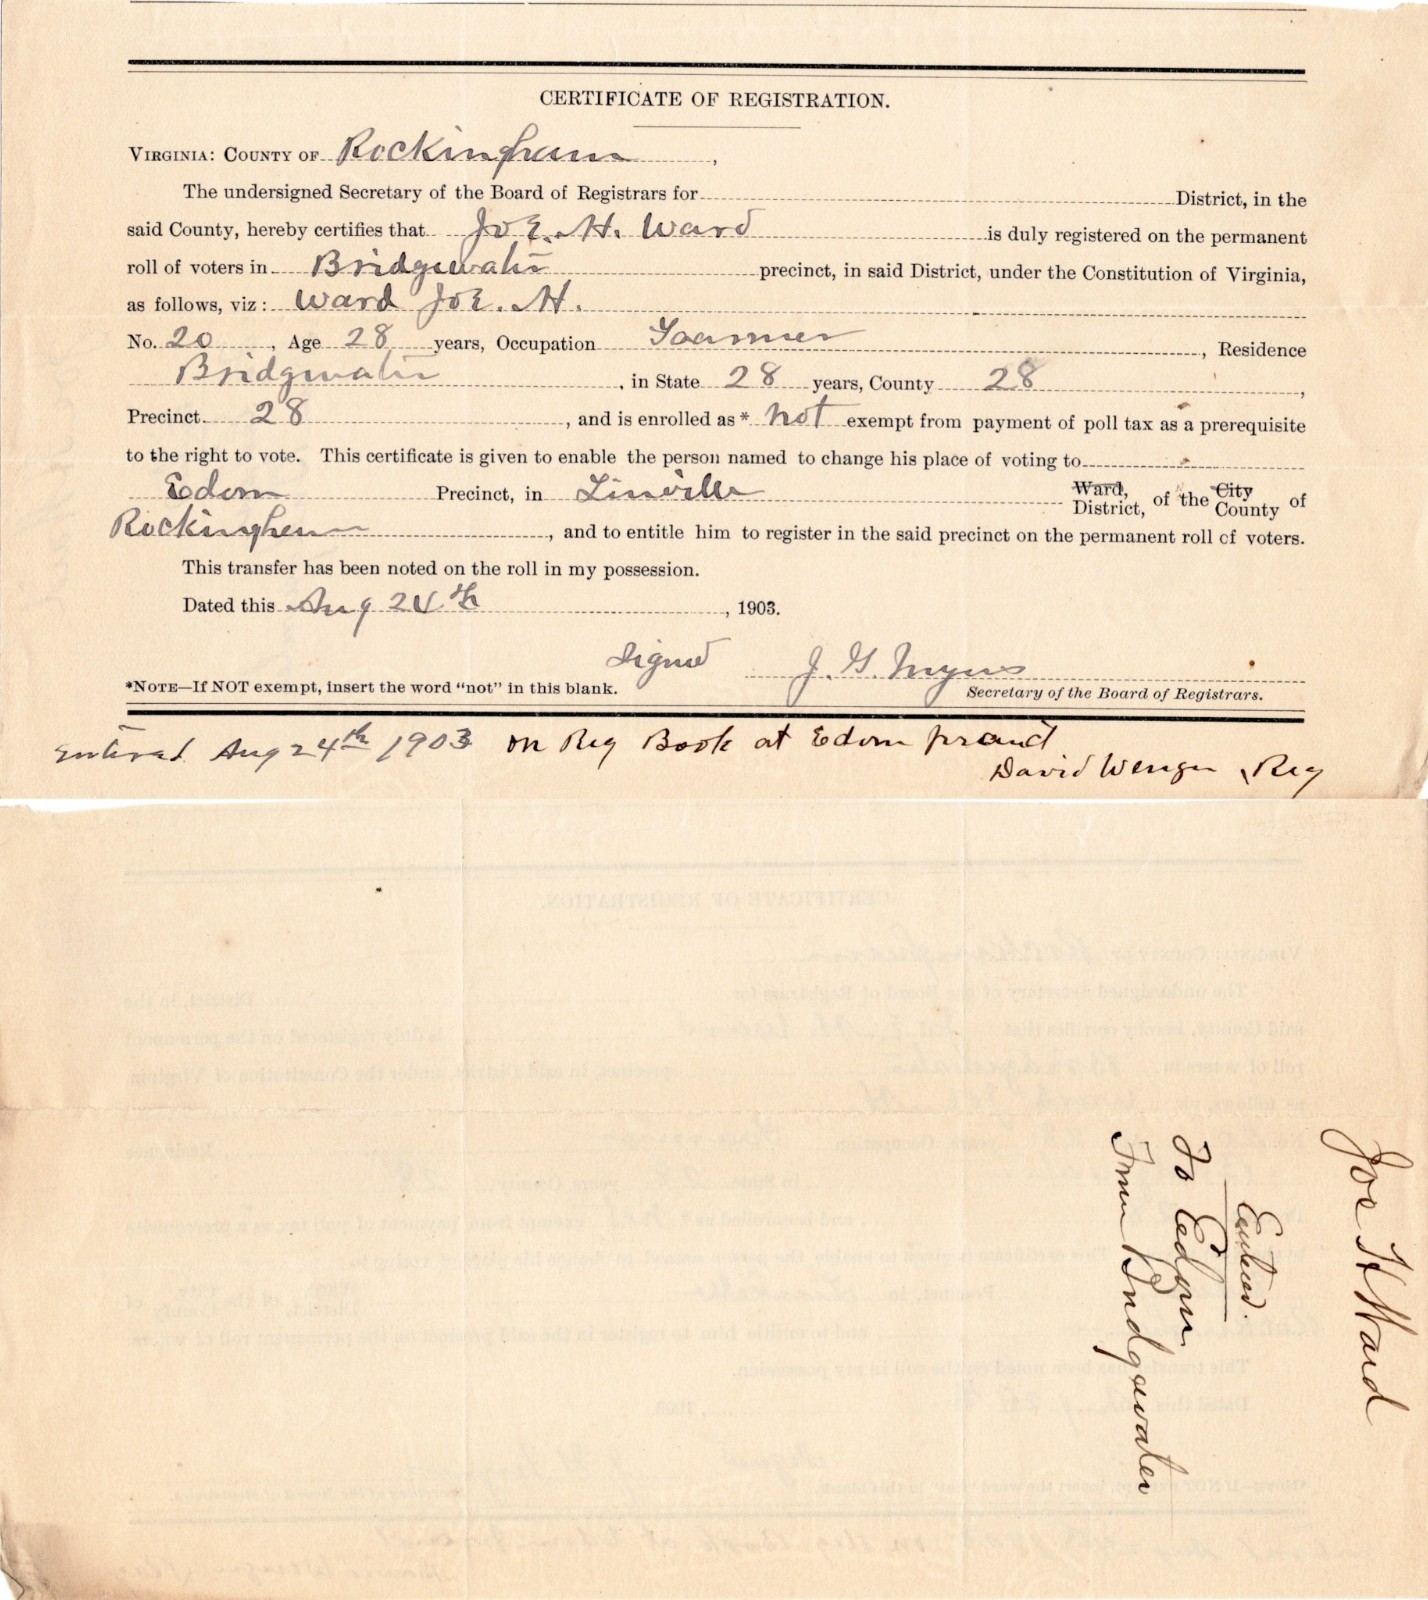 CERTIFICATE OF REGISTRATION.
VIRGINIA: COUNTY OF Rockingham,
The undersigned Secretary of the Board of Registrars for District, in the
said County, hereby certifies that Jos. H. Ward is duly registered on the permanent
roll of voters in Bridgewater precinct, in said District, under the Constitution of Virginia,
as follows, viz: Ward Jos. H.
No. 20, Age 28 years, Occupation Farmer, Residence
Bridgwater, in State 28 years, County 28,
Precinct 28, and is enrolled as * not exempt from payment of poll tax as a prerequisite
to the right to vote. This certificate is given to enable the person named to change his place of voting to
Edom Precinct, in Linville Ward, District, of the City County of
Rockingham, and to entitle him to register in the said precinct on the permanent roll of voters.
This transfer has been noted on the roll in my possession.
Dated this Aug 24th, 1903.
Signed J. G. Myers
*NOTE—If NOT exempt, insert the word "not" in this blank. Secretary of the Board of Registrars.
Entered Aug 24th 1903 on Reg Book at Edom
David Wenger, Reg
Jos H Ward
Entered.
To Edom
From Bridgewater